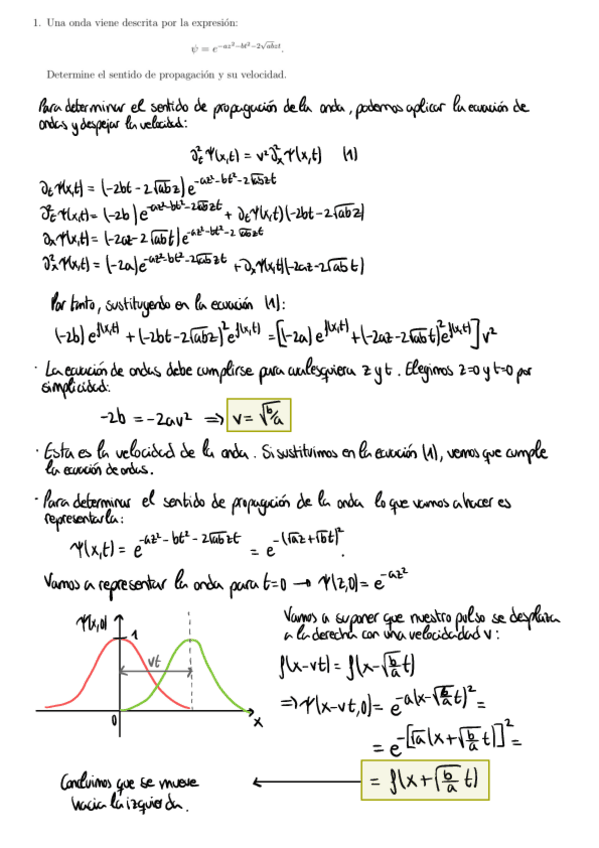 1. Una onda viene descrita por la expresión:
ψ = e^{-az²-bt²-2√ab zt}.
Determine el sentido de propagación y su velocidad.
Para determinar el sentido de propagación de la onda, podemos aplicar la ecuación de
ondas y despejar la velocidad:
∂²ₜΨ(x,t) = v²∂²ₓΨ(x,t) (1)
∂ₜΨ(x,t) = (-2bt - 2√ab z) e^{-az²-bt²-2√ab zt}
∂²ₜΨ(x,t) = (-2b) e^{-az²-bt²-2√ab zt} + ∂ₜΨ(x,t)(-2bt-2√ab z)
∂ₓΨ(x,t) = (-2az-2√ab t) e^{-az²-bt²-2√ab zt}
∂²ₓΨ(x,t) = (-2a) e^{-az²-bt²-2√ab zt} + ∂ₓΨ(x,t)(-2az-2√ab t)
Por tanto, sustituyendo en la ecuación (1):
(-2b) e^{f(x,t)} + (-2bt-2√ab z)² e^{f(x,t)} = [(-2a) e^{f(x,t)} + (-2az-2√ab t)² e^{f(x,t)}] v²
· La ecuación de ondas debe cumplirse para cualesquiera z y t. Elegimos z=0 y t=0 por
simplicidad:
-2b = -2av² ⇒ v = √b/a
· Esta es la velocidad de la onda. Si sustituimos en la ecuación (1), vemos que cumple
la ecuación de ondas.
· Para determinar el sentido de propagación de la onda lo que vamos a hacer es
representarla:
Ψ(x,t) = e^{-az²-bt²-2√ab zt} = e^{-(√a z+√b t)²}.
Vamos a representar la onda para t=0 → Ψ(z,0) = e^{-az²}
Ψ(x,0)
1
vt
0
x
Vamos a suponer que nuestro pulso se desplaza
a la derecha con una velocidad v:
f(x-vt) = f(x-√(b/a) t)
⇒ Ψ(x-vt,0) = e^{-a(x-√(b/a) t)²} =
= e^{-[√a(x+√(b/a) t)]²} =
= f(x+√(b/a) t)
Concluimos que se mueve
hacia la izquierda.